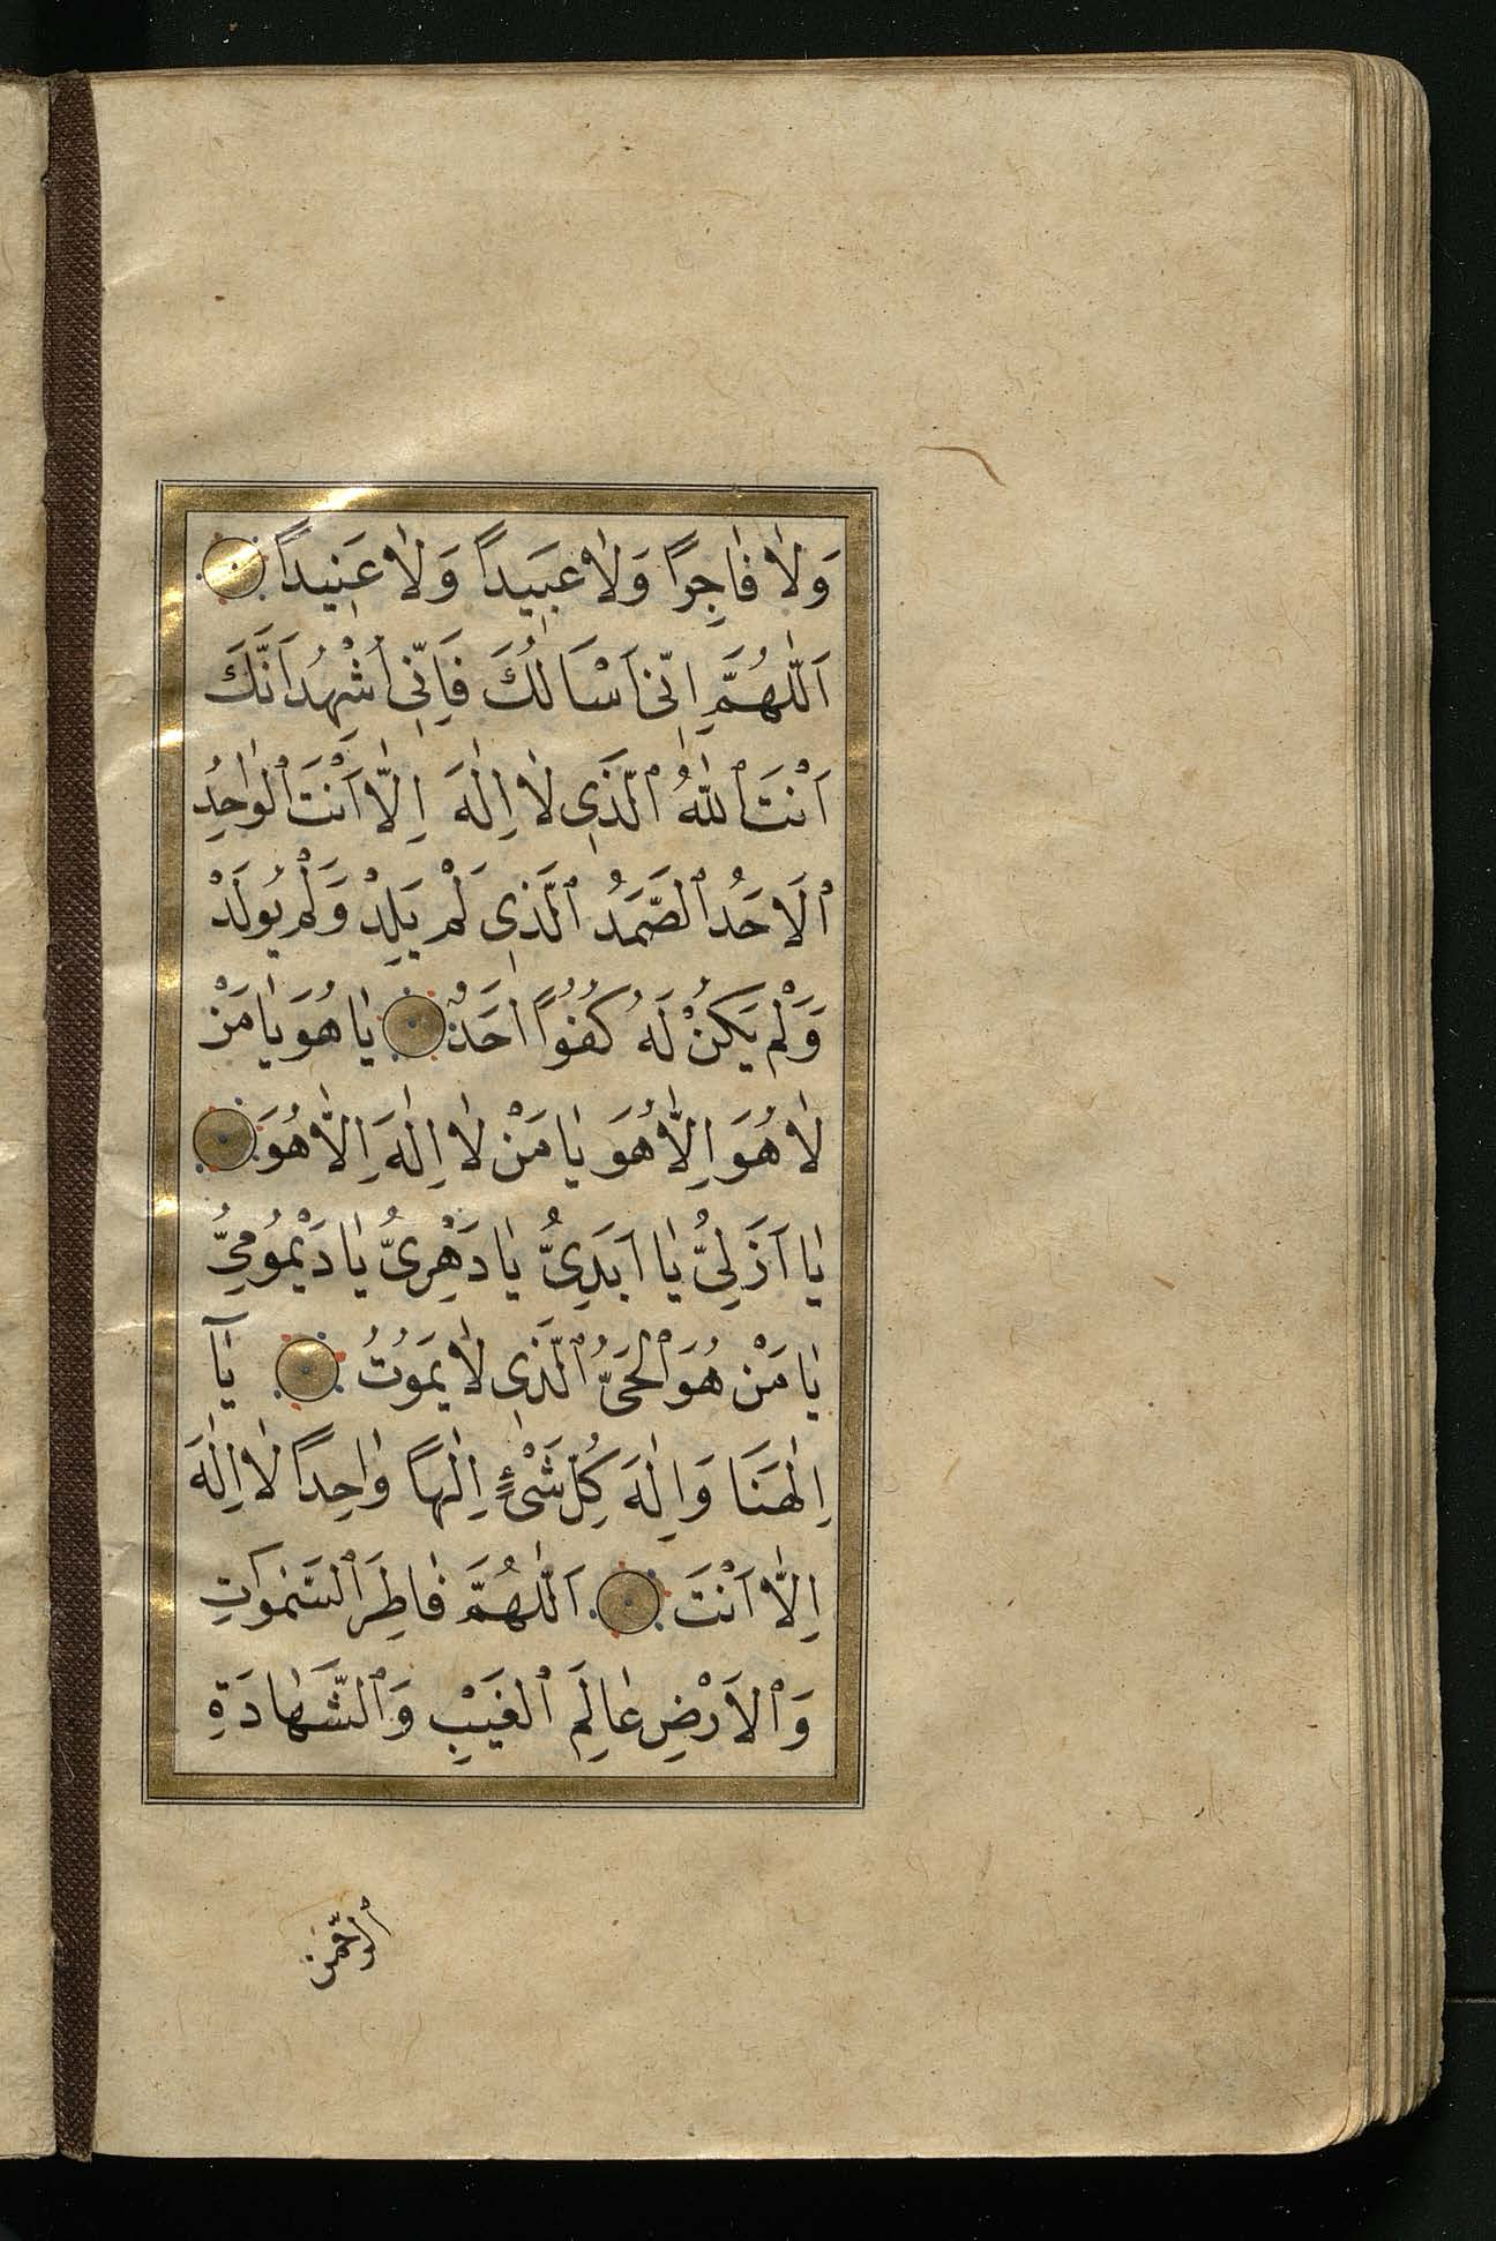 وَلَا فَاجِرًا وَلَا عَبِيدًا وَلَا عَنِيدًا
اَللّٰهُمَّ اِنِّي اَسْاَلُكَ فَاِنِّي اَشْهَدُ اَنَّكَ
اَنْتَ ٱللّٰهُ ٱلَّذِي لَا اِلٰهَ اِلَّا اَنْتَ ٱلْوَاحِدُ
ٱلْاَحَدُ ٱلصَّمَدُ ٱلَّذِي لَمْ يَلِدْ وَلَمْ يُولَدْ
وَلَمْ يَكُنْ لَهُ كُفُوًا اَحَدٌ يَا هُوَ يَا مَنْ
لَا هُوَ اِلَّا هُوَ يَا مَنْ لَا اِلٰهَ اِلَّا هُوَ
يَا اَزَلِيُّ يَا اَبَدِيُّ يَا دَهْرِيُّ يَا دَيْمُومِيُّ
يَا مَنْ هُوَ ٱلْحَيُّ ٱلَّذِي لَا يَمُوتُ يَآ
اِلٰهَنَا وَاِلٰهَ كُلِّ شَيْءٍ اِلٰهًا وَاحِدًا لَا اِلٰهَ
اِلَّا اَنْتَ اَللّٰهُمَّ فَاطِرَ ٱلسَّمٰوَاتِ
وَٱلْاَرْضِ عَالِمَ ٱلْغَيْبِ وَٱلشَّهَادَةِ
ٱلرَّحْمٰنَ